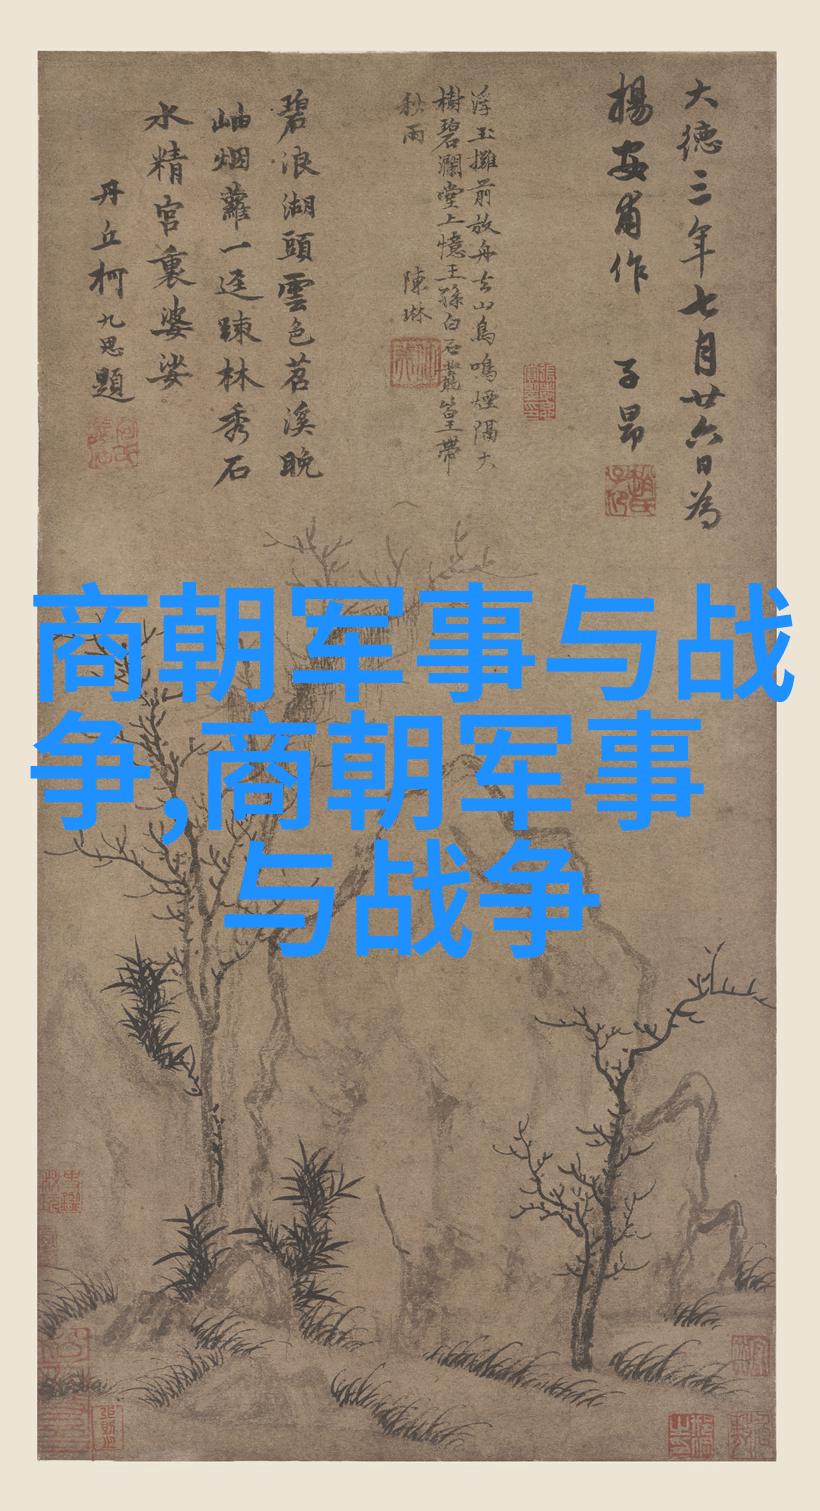 大德三年七月廿六日為
楊安甫作 子昂
浮玉攤前放舟去山鳥鳴煙隔大
樹碧瀾堂上憶王孫白石叢篁帶
秋雨 陳琳
碧浪湖頭雲色苕溪晚
岫烟蘿一迳踈林秀石
水精宮裏婆娑
丹丘柯九思題
商朝军事与战
争,商朝军事
与战争